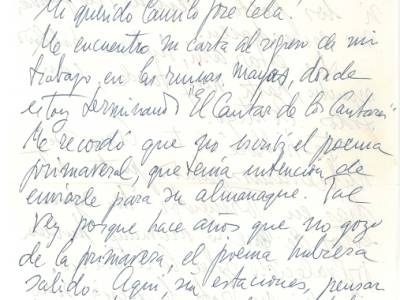 Mi querido Camilo José Cela:
Me encuentro su carta al regreso de mi
trabajo, en las ruinas mayas, donde
estoy terminando "El Cantar de los Cantares"
Me recordó que no escribí el poema
primaveral, que tenía intención de
enviarle para su almanaque. Tal
vez, porque hace años que no gozo
de la primavera, el poema hubiera
salido. Aquí, sin estaciones, pensar